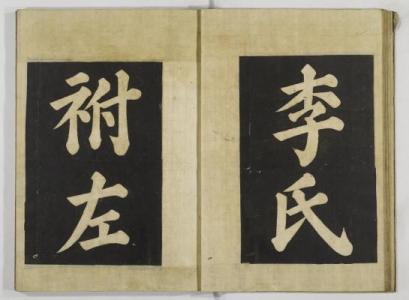 李氏
祔左